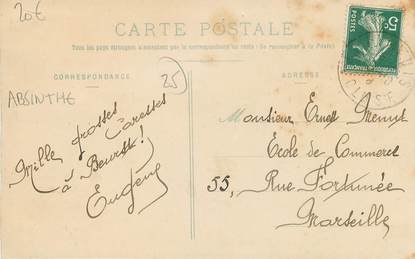 20€
CARTE POSTALE
Tous les pays étrangers n'acceptent pas la correspondance au recto (Se renseigner à la Poste)
CORRESPONDANCE
ADRESSE
25
ABSINTHE
5c
POSTES
Mille grosses Caresses
à !
Eugène
Monsieur Ernest
Ecole de Commerce
55, Rue Fortunée
Marseille